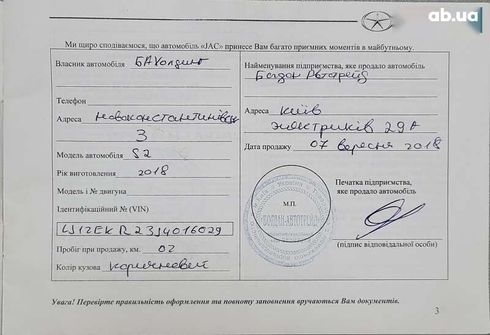 ab.ua
Ми щиро сподіваємося, що автомобіль «JAC» принесе Вам багато приємних моментів в майбутньому.
Власник автомобіля БАХолдинг
Телефон
Адреса Новоконстантинівськ
3
Модель автомобіля S2
Рік виготовлення 2018
Модель і № двигуна
Ідентифікаційний № (VIN)
LJ12EKR23J4016029
Пробіг при продажу, км. 02
Колір кузова коричневий
Найменування підприємства, яке продало автомобіль
Богдан Автотрейд
Адреса Київ
Электриків 29А
Дата продажу 07 вересня 2018
УКРАЇНА
БОГДАН-АВТОТРЕЙД
М.П.
Печатка підприємства,
яке продало автомобіль
(підпис відповідальної особи)
Увага! Перевірте правильність оформлення та повноту заповнення вручаються Вам документів.
3